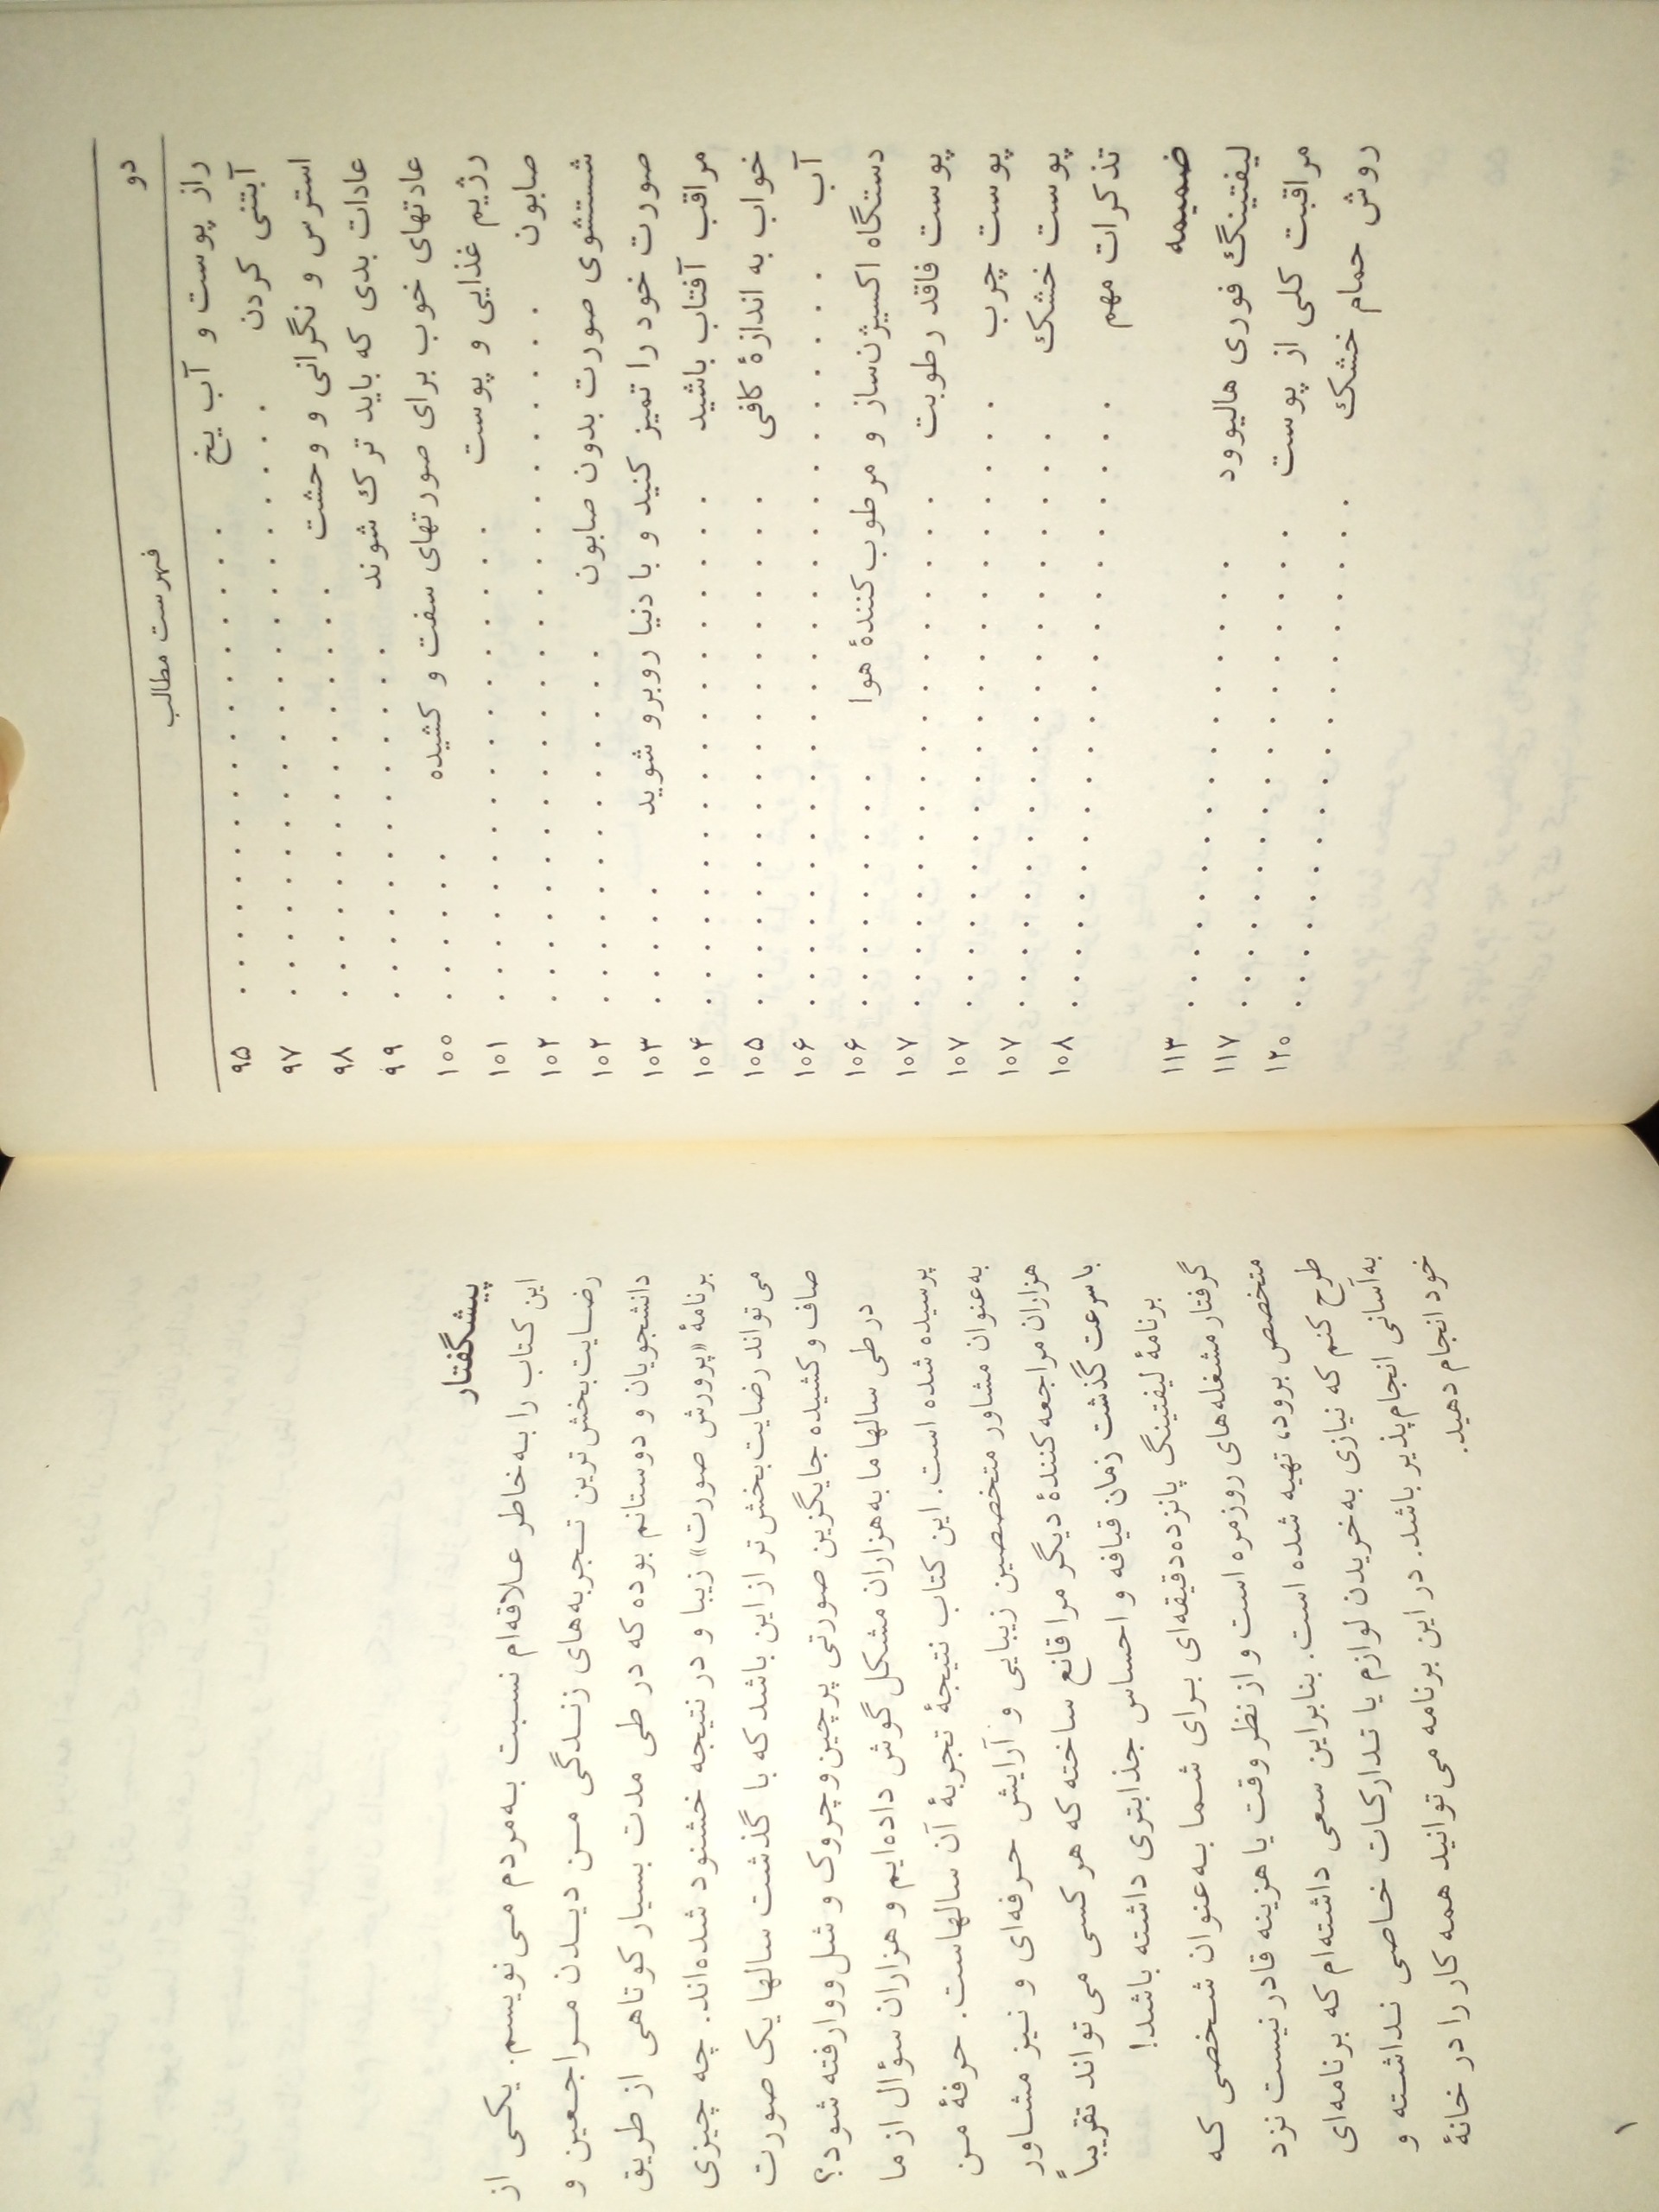 دو
فهرست مطالب
راز پوست و آب یخ . . . . . . . . . . . . . . . . ۹۵
آبتنی کردن . . . . . . . . . . . . . . . . . . . . ۹۷
استرس و نگرانی و وحشت . . . . . . . . . . . . . . ۹۸
عادات بدی که باید ترک شوند . . . . . . . . . . . . ۹۹
عادتهای خوب برای صورتهای سفت و کشیده . . . . . ۱۰۰
رژیم غذایی و پوست . . . . . . . . . . . . . . . . ۱۰۱
صابون . . . . . . . . . . . . . . . . . . . . . . . ۱۰۲
شستشوی صورت بدون صابون . . . . . . . . . . . . ۱۰۲
صورت خود را تمیز کنید و با دنیا روبرو شوید . . . . ۱۰۳
مراقب آفتاب باشید . . . . . . . . . . . . . . . . . ۱۰۴
خواب به اندازهٔ کافی . . . . . . . . . . . . . . . . ۱۰۵
آب . . . . . . . . . . . . . . . . . . . . . . . . . ۱۰۶
دستگاه اکسیژن‌ساز و مرطوب‌کنندهٔ هوا . . . . . . . ۱۰۶
پوست فاقد رطوبت . . . . . . . . . . . . . . . . . ۱۰۷
پوست چرب . . . . . . . . . . . . . . . . . . . . ۱۰۷
پوست خشک . . . . . . . . . . . . . . . . . . . ۱۰۷
تذکرات مهم . . . . . . . . . . . . . . . . . . . . ۱۰۸
ضمیمه
لیفتینگ فوری هالیوود . . . . . . . . . . . . . . . ۱۱۳
مراقبت کلی از پوست . . . . . . . . . . . . . . . . ۱۱۷
روش حمام خشک . . . . . . . . . . . . . . . . . ۱۲۰
پیشگفتار
این کتاب را به‌خاطر علاقه‌ام نسبت به‌مردم می‌نویسم. یکی از
رضایت‌بخش‌ترین تجربه‌های زندگی من دیدن مراجعین و
دانشجویان و دوستانم بوده که در طی مدت بسیار کوتاهی از طریق
برنامهٔ «پرورش صورت» زیبا و در نتیجه خشنود شده‌اند. چه چیزی
می‌تواند رضایت‌بخش‌تر از این باشد که با گذشت سالها یک صورت
صاف و کشیده جایگزین صورتی پرچین‌وچروک و شل‌ووارفته شود؟
در طی سالها ما به‌هزاران مشکل گوش داده‌ایم و هزاران سؤال از ما
پرسیده شده است. این کتاب نتیجهٔ تجربهٔ آن سالهاست. حرفهٔ من
به‌عنوان مشاور متخصصین زیبایی و آرایش حرفه‌ای و نیز مشاور
هزاران مراجعه‌کنندهٔ دیگر مرا قانع ساخته که هر کسی می‌تواند تقریباً
با سرعت گذشت زمان قیافه و احساس جذابتری داشته باشد!
برنامهٔ لیفتینگ پانزده‌دقیقه‌ای برای شما به‌عنوان شخصی که
گرفتار مشغله‌های روزمره است و از نظر وقت یا هزینه قادر نیست نزد
متخصص برود، تهیه شده است. بنابراین سعی داشته‌ام که برنامه‌ای
طرح کنم که نیازی به‌خریدن لوازم یا تدارکات خاصی نداشته و
به‌آسانی انجام‌پذیر باشد. در این برنامه می‌توانید همه کار را در خانهٔ
خود انجام دهید.
۱